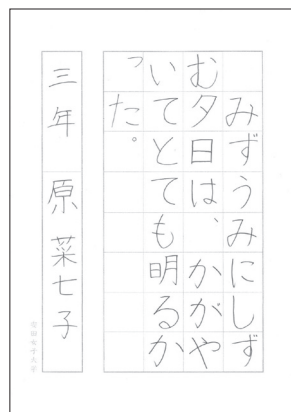 みずうみにしず
む夕日は、かがや
いてとても明るか
った。
三年 原 菜七子